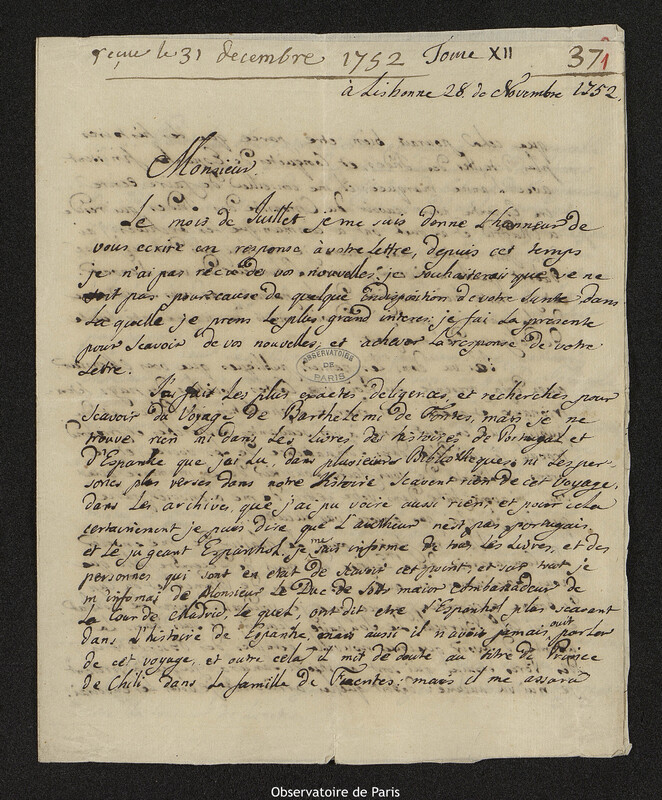 reçue le 31 decembre 1752 Tome XII 37
1
à Lisbonne 28 de Novembre 1752.
Monsieur.
Le mois de Juillet je me suis donne L'honneur de
vous ecrire en response à votre Lettre, depuis cet temps
je n'ai pas reçu des vos nouvelles, je souhaiterai que ce ne
soit pas pour cause de quelque Endisposition de votre Sante dans
La quelle je prens le plus grand interes; je fai La presente
pour sçavoir de vos nouvelles, et achever La response de votre
Lettre.
OBSERVATOIRE
DE
PARIS
J'ai fait Les plus exactes deligences, et recherches pour
scavoir du Voyage de Barthelemi de Fontes, mais je ne
trouve rien ni dans Les Livres des histoires de Portugal et
d'Espanhe que j'ai Lu, dans plusieurs Bibliotheques, ni Les per-
sones plus verses dans notre Histoire scavent rien de cet Voyage,
dans Les archives, que j'ac pu voire aussi rien; et pour cela
certainement je puis dire que L'autheur n'est pas portugais
et Le jugeant Espanhol je me suis informe de tous Les Livres, et des
personnes qui sont en etat de scavoir cet point, et sur tout je
m'infomai de Monsieur Le Duc de Soto maior Ambanadeur de
La Cour de Madrid, Le quel, ont dit etre L'Espanhol plus scavent
dans L'histoire de Espanhe, mais aussi il n'avoit jamais ouit parler
de cet voyage, et outre cela il mit de doute au titre de Prince
de Chili dans La famille de Fuentes; mais il me assura
Observatoire de Paris